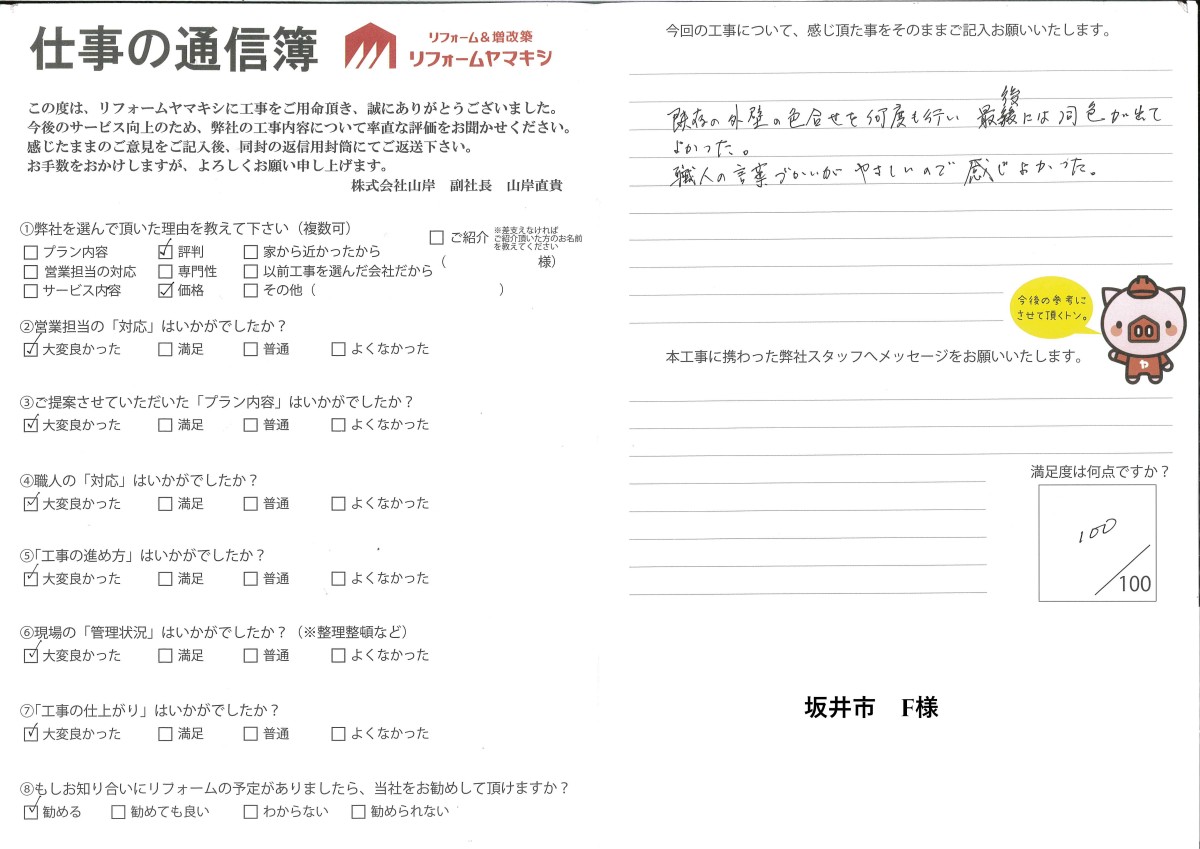 仕事の通信簿
リフォーム＆増改築
リフォームヤマキシ
この度は、リフォームヤマキシに工事をご用命頂き、誠にありがとうございました。
今後のサービス向上のため、弊社の工事内容について率直な評価をお聞かせください。
感じたままのご意見をご記入後、同封の返信用封筒にてご返送下さい。
お手数をおかけしますが、よろしくお願い申し上げます。
株式会社山岸　副社長　山岸直貴
①弊社を選んで頂いた理由を教えて下さい（複数可）
□ プラン内容　☑ 評判　□ 家から近かったから
□ 営業担当の対応　□ 専門性　□ 以前工事を選んだ会社だから
□ サービス内容　☑ 価格　□ その他（　　　）
□ ご紹介
※差支えなければ
ご紹介頂いた方のお名前
を教えてください
（　　　様）
②営業担当の「対応」はいかがでしたか？
☑ 大変良かった　□ 満足　□ 普通　□ よくなかった
③ご提案させていただいた「プラン内容」はいかがでしたか？
☑ 大変良かった　□ 満足　□ 普通　□ よくなかった
④職人の「対応」はいかがでしたか？
☑ 大変良かった　□ 満足　□ 普通　□ よくなかった
⑤「工事の進め方」はいかがでしたか？
☑ 大変良かった　□ 満足　□ 普通　□ よくなかった
⑥現場の「管理状況」はいかがでしたか？（※整理整頓など）
☑ 大変良かった　□ 満足　□ 普通　□ よくなかった
⑦「工事の仕上がり」はいかがでしたか？
☑ 大変良かった　□ 満足　□ 普通　□ よくなかった
⑧もしお知り合いにリフォームの予定がありましたら、当社をお勧めして頂けますか？
☑ 勧める　□ 勧めても良い　□ わからない　□ 勧められない
今回の工事について、感じ頂た事をそのままご記入お願いいたします。
既存の外壁の色合せを何度も行い 最後には同色が出て
よかった。
職人の言葉づかいがやさしいので 感じよかった。
今後の参考に
させて頂くトン。
ヤ
本工事に携わった弊社スタッフへメッセージをお願いいたします。
満足度は何点ですか？
100
/100
坂井市　F様